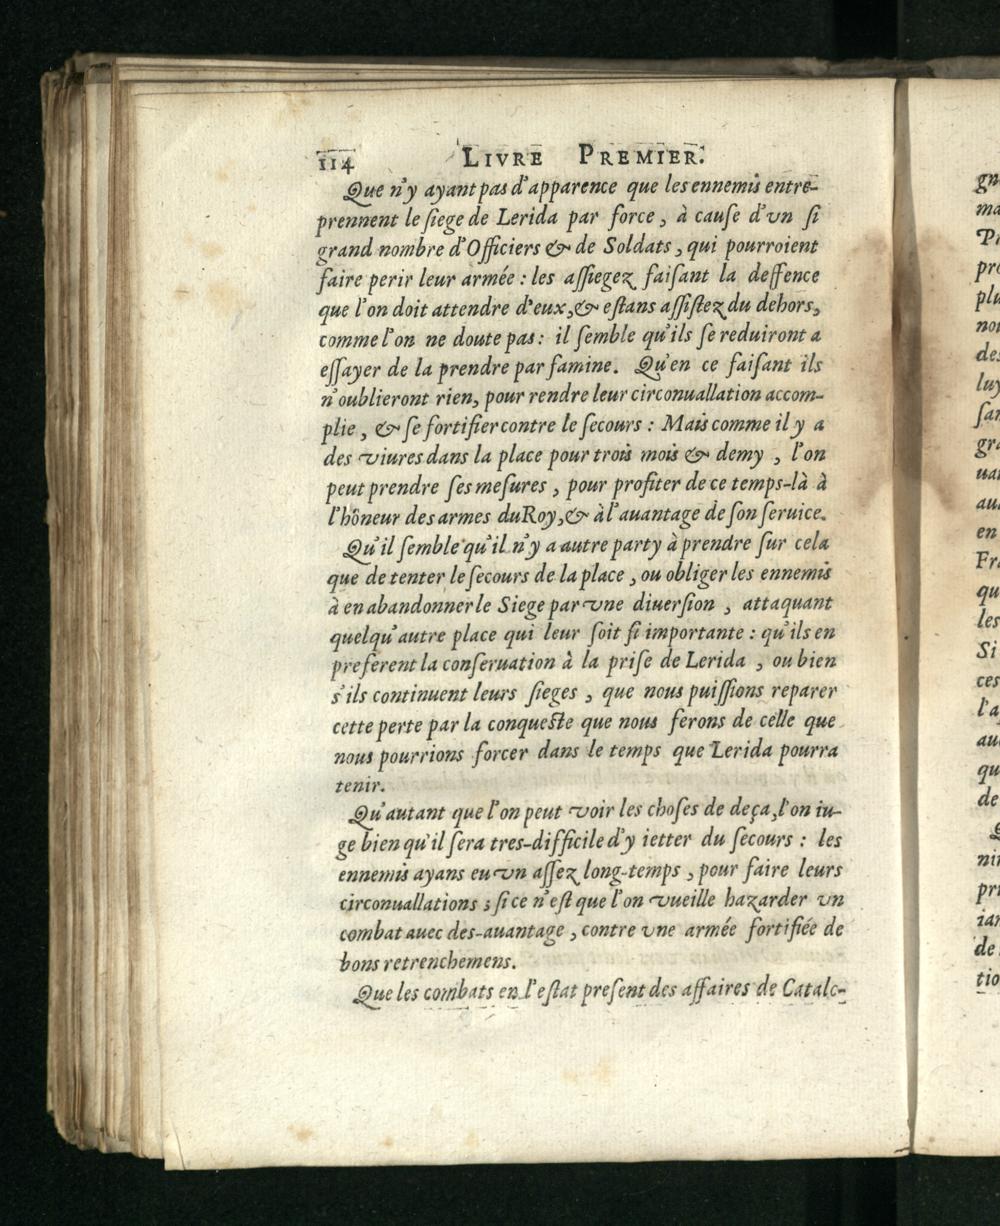 114 LIVRE PREMIER.
Que n'y ayant pas d'apparence que les ennemis entre-
prennent le siege de Lerida par force, à cause d'vn si
grand nombre d'Officiers & de Soldats, qui pourroient
faire perir leur armée : les assiegez faisant la deffence
que l'on doit attendre d'eux, & estans assistez du dehors,
comme l'on ne doute pas : il semble qu'ils se reduiront a
essayer de la prendre par famine. Qu'en ce faisant ils
n'oublieront rien, pour rendre leur circonuallation accom-
plie, & se fortifier contre le secours : Mais comme il y a
des viures dans la place pour trois mois & demy, l'on
peut prendre ses mesures, pour profiter de ce temps-là à
l'hõneur des armes du Roy, & à l'auantage de son seruice.
Qu'il semble qu'il n'y a autre party à prendre sur cela
que de tenter le secours de la place, ou obliger les ennemis
à en abandonner le Siege par vne diuersion, attaquant
quelqu'autre place qui leur soit si importante : qu'ils en
preferent la conseruation à la prise de Lerida, ou bien
s'ils continuent leurs sieges, que nous puissions reparer
cette perte par la conqueste que nous ferons de celle que
nous pourrions forcer dans le temps que Lerida pourra
tenir.
Qu'autant que l'on peut voir les choses de deça, l'on iu-
ge bien qu'il sera tres-difficile d'y ietter du secours : les
ennemis ayans eu vn assez long-temps, pour faire leurs
circonuallations ; si ce n'est que l'on vueille hazarder vn
combat auec des-auantage, contre vne armée fortifiée de
bons retrenchemens.
Que les combats en l'estat present des affaires de Catalo-
gn
ma
pro
plu
no
des
luy
san
gra
uan
au
en
Fr
qu
les
Si
ces
l'a
au
qu
de
nin
pr
ian
de
tio